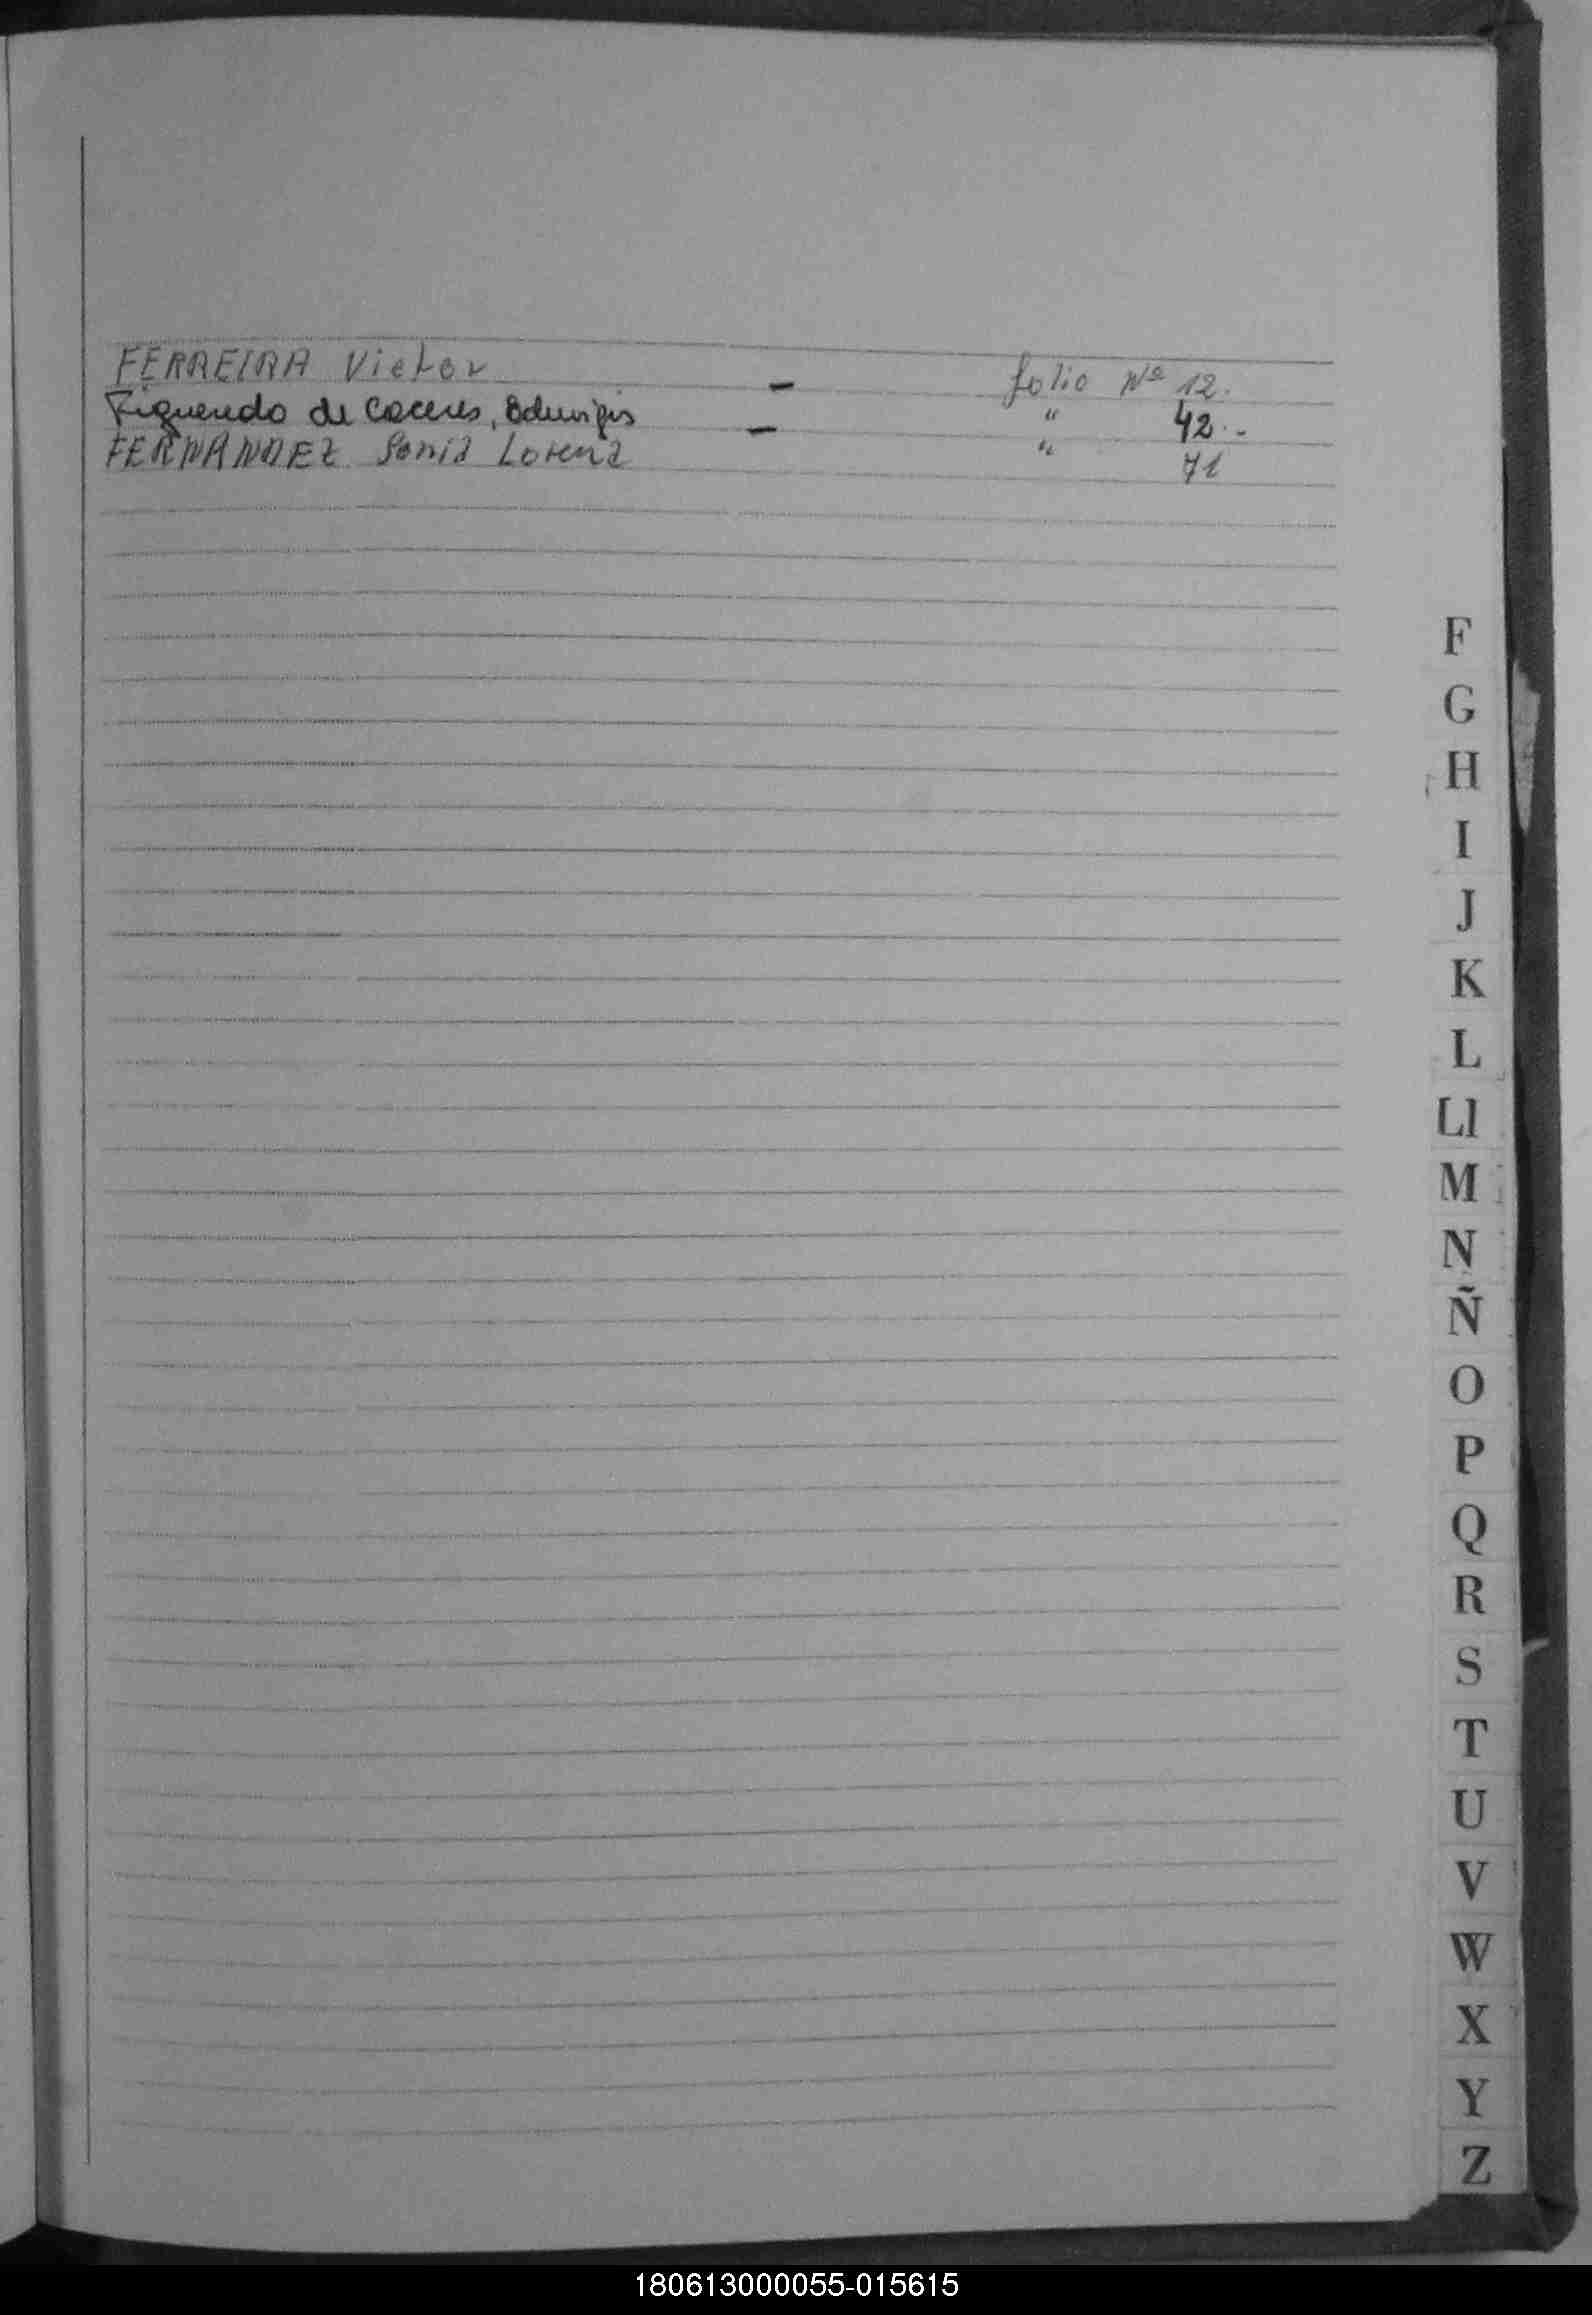 FERREIRA Victor - folio Nº 12.
Figueredo de Caceres, Eduvigis - " 42.-
FERNANDEZ Sonia Lorena " 71
F
G
H
I
J
K
L
Ll
M
N
Ñ
O
P
Q
R
S
T
U
V
W
X
Y
Z
180613000055-015615